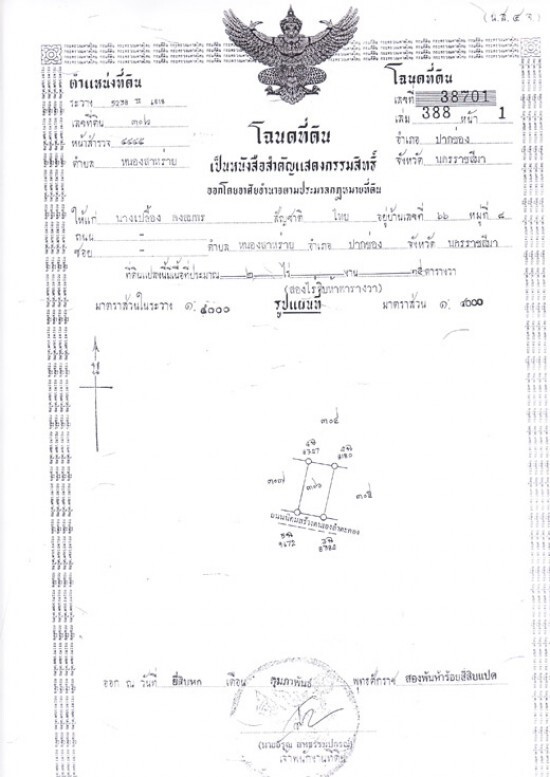 (น.ส. ๔ จ)
ตำแหน่งที่ดิน
ระวาง
เลขที่ดิน ๓๐๖
หน้าสำรวจ ๔๔๔๔
ตำบล หนองสาหร่าย
โฉนดที่ดิน
เลขที่ 38701
เล่ม 388 หน้า 1
อำเภอ ปากช่อง
จังหวัด นครราชสีมา
โฉนดที่ดิน
เป็นหนังสือสำคัญแสดงกรรมสิทธิ์
ออกโดยอาศัยอำนาจตามประมวลกฎหมายที่ดิน
ให้แก่ นางเปลื้อง สัญชาติ ไทย อยู่บ้านเลขที่ ๖๖ หมู่ที่ ๔
ถนน -
ซอย - ตำบล หนองสาหร่าย อำเภอ ปากช่อง จังหวัด นครราชสีมา
ที่ดินแปลงนี้มีเนื้อที่ประมาณ ๒ ไร่ - งาน ๑๕ ตารางวา
(สองไร่สิบห้าตารางวา)
มาตราส่วนในระวาง ๑: ๔๐๐๐ รูปแผนที่ มาตราส่วน ๑: ๔๐๐๐
น
๓๐๕
๓๐๗
๓๐๖
๓๐๕
ออก ณ วันที่ ยี่สิบหก เดือน กุมภาพันธ์ พุทธศักราช สองพันห้าร้อยสี่สิบแปด
เจ้าพนักงานที่ดิน